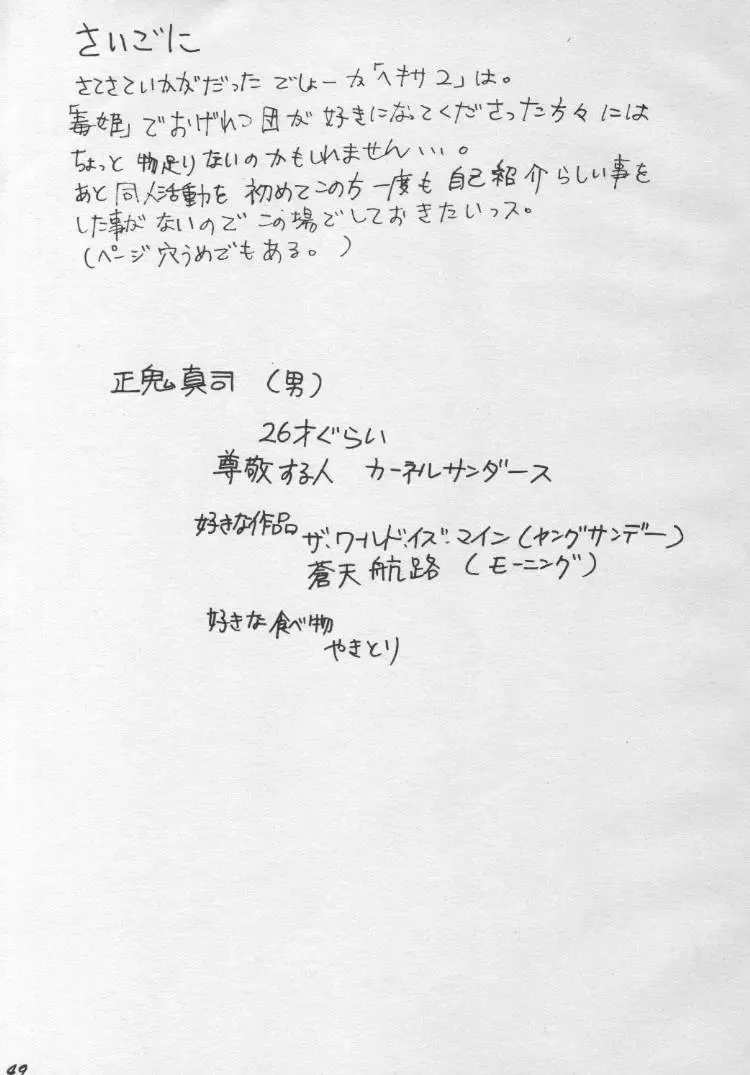 さいごに
さてさていかがだったでしょーか「ヘキサ2」は。
「毒姫」でおげれつ団が好きになってくださった方々には
ちょっと物足りないのかもしれません・・・。
あと同人活動を初めてこの方一度も自己紹介らしい事を
した事がないのでこの場でしておきたいっス。
(ページ穴うめでもある。)
正鬼真司 (男)
26才ぐらい
尊敬する人 カーネルサンダース
好きな作品 ザ・ワールド・イズ・マイン(ヤングサンデー)
蒼天航路 (モーニング)
好きな食べ物
やきとり
49